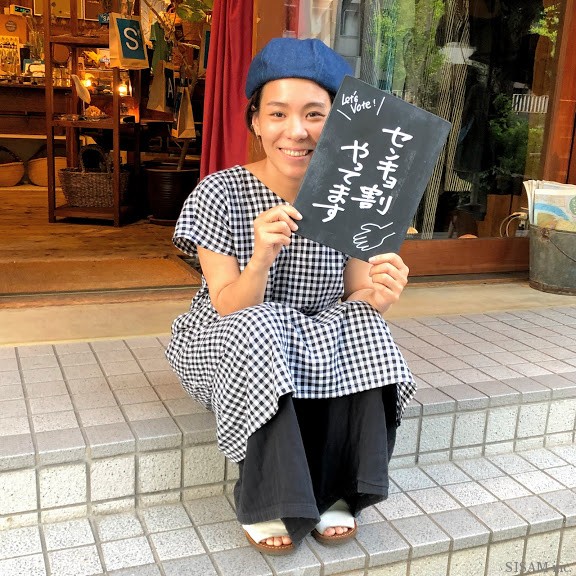 Let's
Vote!
センキョ割
やてます
S
SISAM inc.